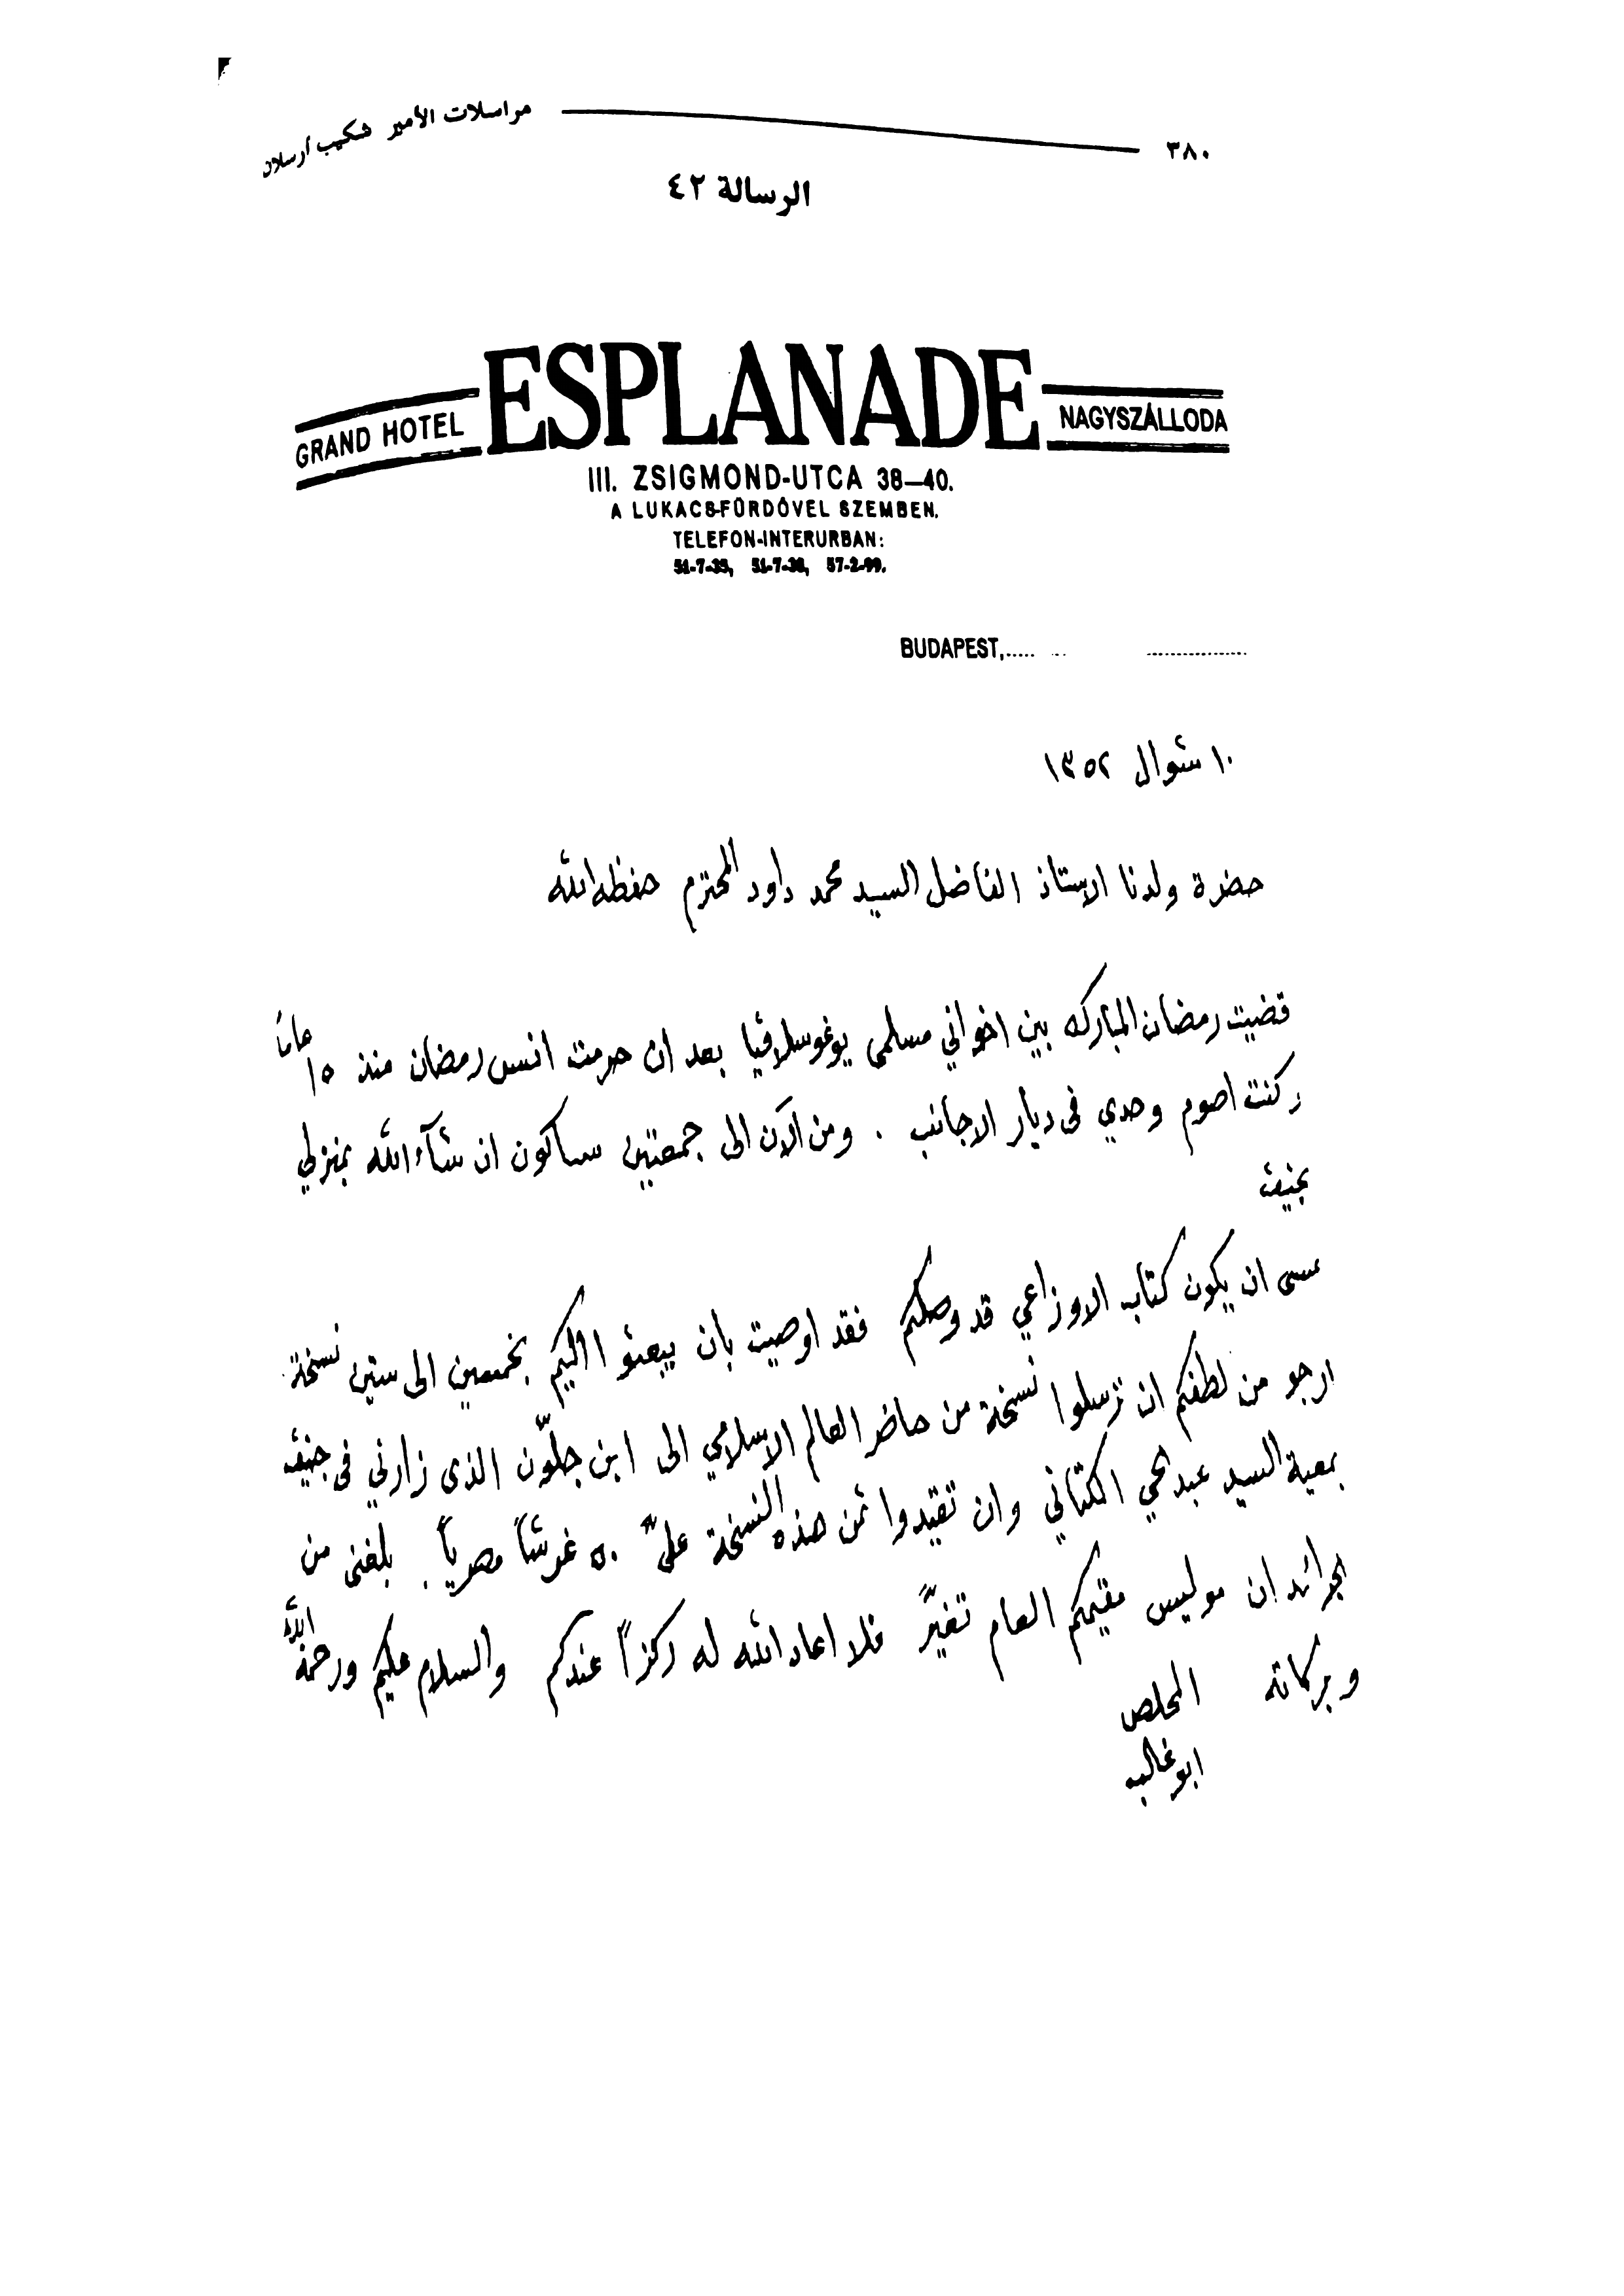 ٣٨٠ مراسلات الأمير شكيب أرسلان
الرسالة ٤٢
GRAND HOTEL ESPLANADE NAGYSZÁLLODA
III. ZSIGMOND-UTCA 38–40.
A LUKACS-FÜRDŐVEL SZEMBEN.
TELEFON-INTERURBAN:
51-7-35, 51-7-38, 57-2-99.
BUDAPEST,
١٠ شوال ١٣٥٢
حضرة ولدنا الاستاذ الفاضل السيد محمد داود المحترم حفظه الله
قضيت رمضان المبارك بين اخواني مسلمى يوغوسلافيا بعد ان حرمت انس رمضان منذ ١٥ عاماً
وكنت اصوم وحدي فى ديار الاجانب . ومن الآن الى جمعتين ساكون ان شآء الله بمنزلي
بجنيف
عسى ان يكون كتاب الاوزاعي قد وصلكم فقد اوصيت بان يبعثوا اليكم بخمسين الى ستين نسخة
ارجو من لطفكم ان ترسلوا نسخة من حاضر العالم الاسلامي الى ابن جلّون الذى زارني فى جنيف
بمعية السيد عبد الحي الكتاني وان تقيدوا ثمن هذه النسخة عليّ ٥٠ غرشاً مصرياً . بلغنى من
الجرائد ان موليس مقيمكم العام تغيّر فلا اعاد الله له ركزاً عندكم والسلام عليكم ورحمة الله
وبركاته المخلص
ابو غالب